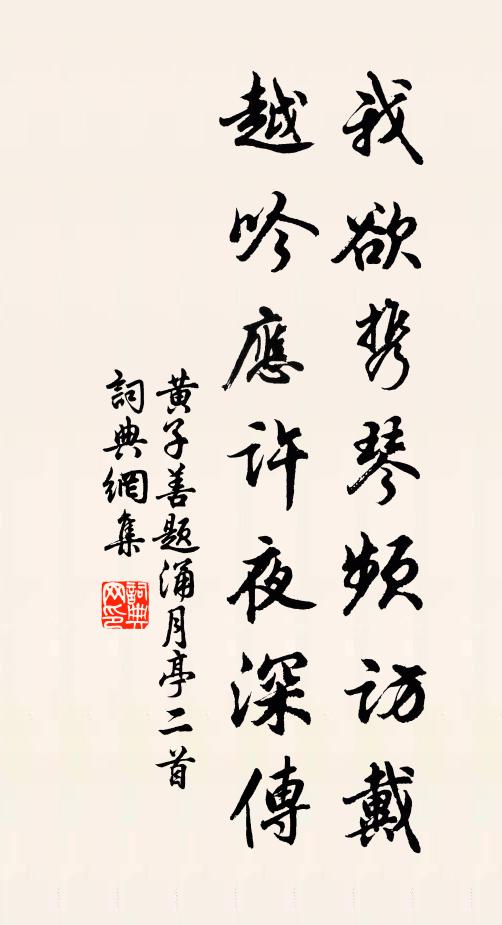 我欲携琴頻訪戴
越吟應許夜深傳
黄子善題涌月亭二首
詞典網集
詞典网印